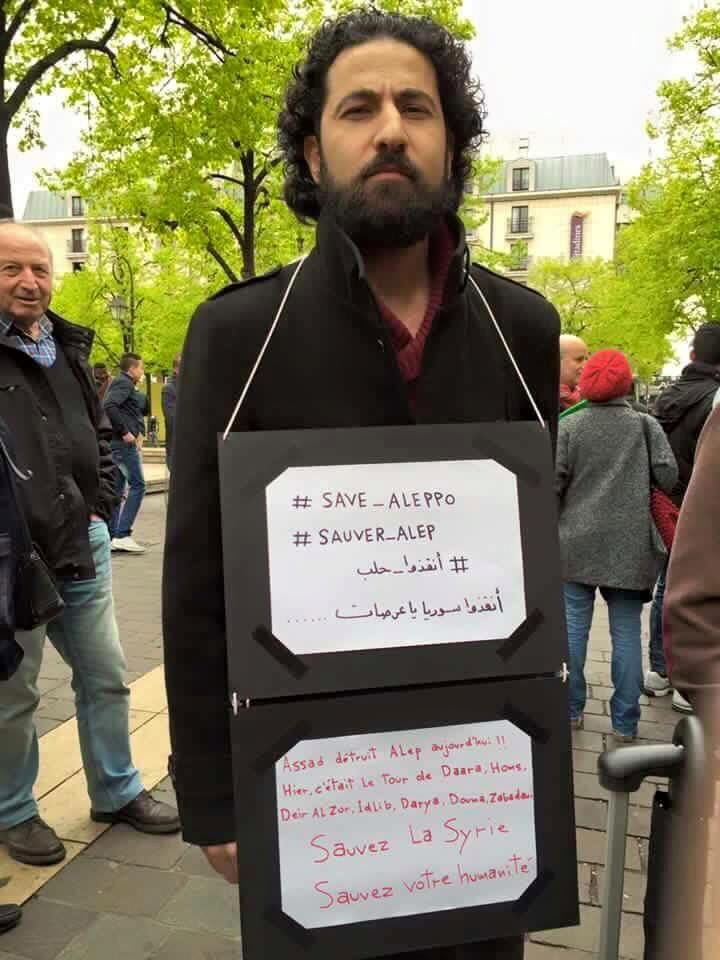 # SAVE_ALEPPO
# SAUVER_ALEP
# أنقذوا_حلب
أنقذوا سوريا يا عرصات ......
Assad détruit Alep aujourd'hui !!
Hier, c'était Le Tour de Daara, Homs,
Deir AL Zor, Idlib, Darya, Douma, Zabadani
Sauvez La Syrie
Sauvez votre humanité
citadines